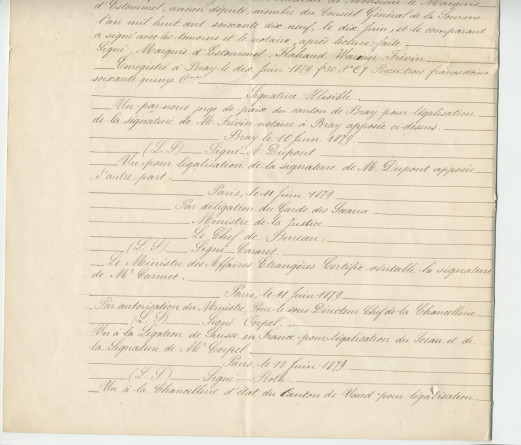 d'Estourmel, ancien député, membre du Conseil Général de la Somme
l'an mil huit cent soixante dix neuf, le dix Juin, et le comparant
a signé avec les témoins et le notaire, après lecture faite.
Signé: Marquis d'Estourmel, Warnier Frévin
Enregistré à Bray le dix Juin 1879 f° 30 N° C7 Reçu trois francs dans
soixante quinze C^mes
Signature Illisible
Vu par nous juge de paix du canton de Bray pour légalisation
de la signature de M. Frévin notaire à Bray apposée ci-dessus.
Bray le 10 Juin 1879.
(L. S) Signé A. Dupont
Vu pour légalisation de la signature de M. Dupont apposée
d'autre part.
Paris, le 11 Juin 1879
Par délégation du Garde des Sceaux
Ministre de la Justice
Le Chef de Bureau:
(L. S) Signé Carmet
Le Ministre des Affaires Etrangères Certifie véritable la signature
de M^r Carmet.
Paris, le 11 Juin 1879
Par autorisation du Ministre, Pour le sous Directeur Chef de la Chancellerie
(L. S) Signé Corpel.
Vu à la Légation de Suisse en France pour légalisation du Sceau et de
la Signature de M^r Corpel
Paris le 12 Juin 1879
(L. S) Signé Roth.
Vu à la Chancellerie d'état du Canton de Vaud pour légalisation